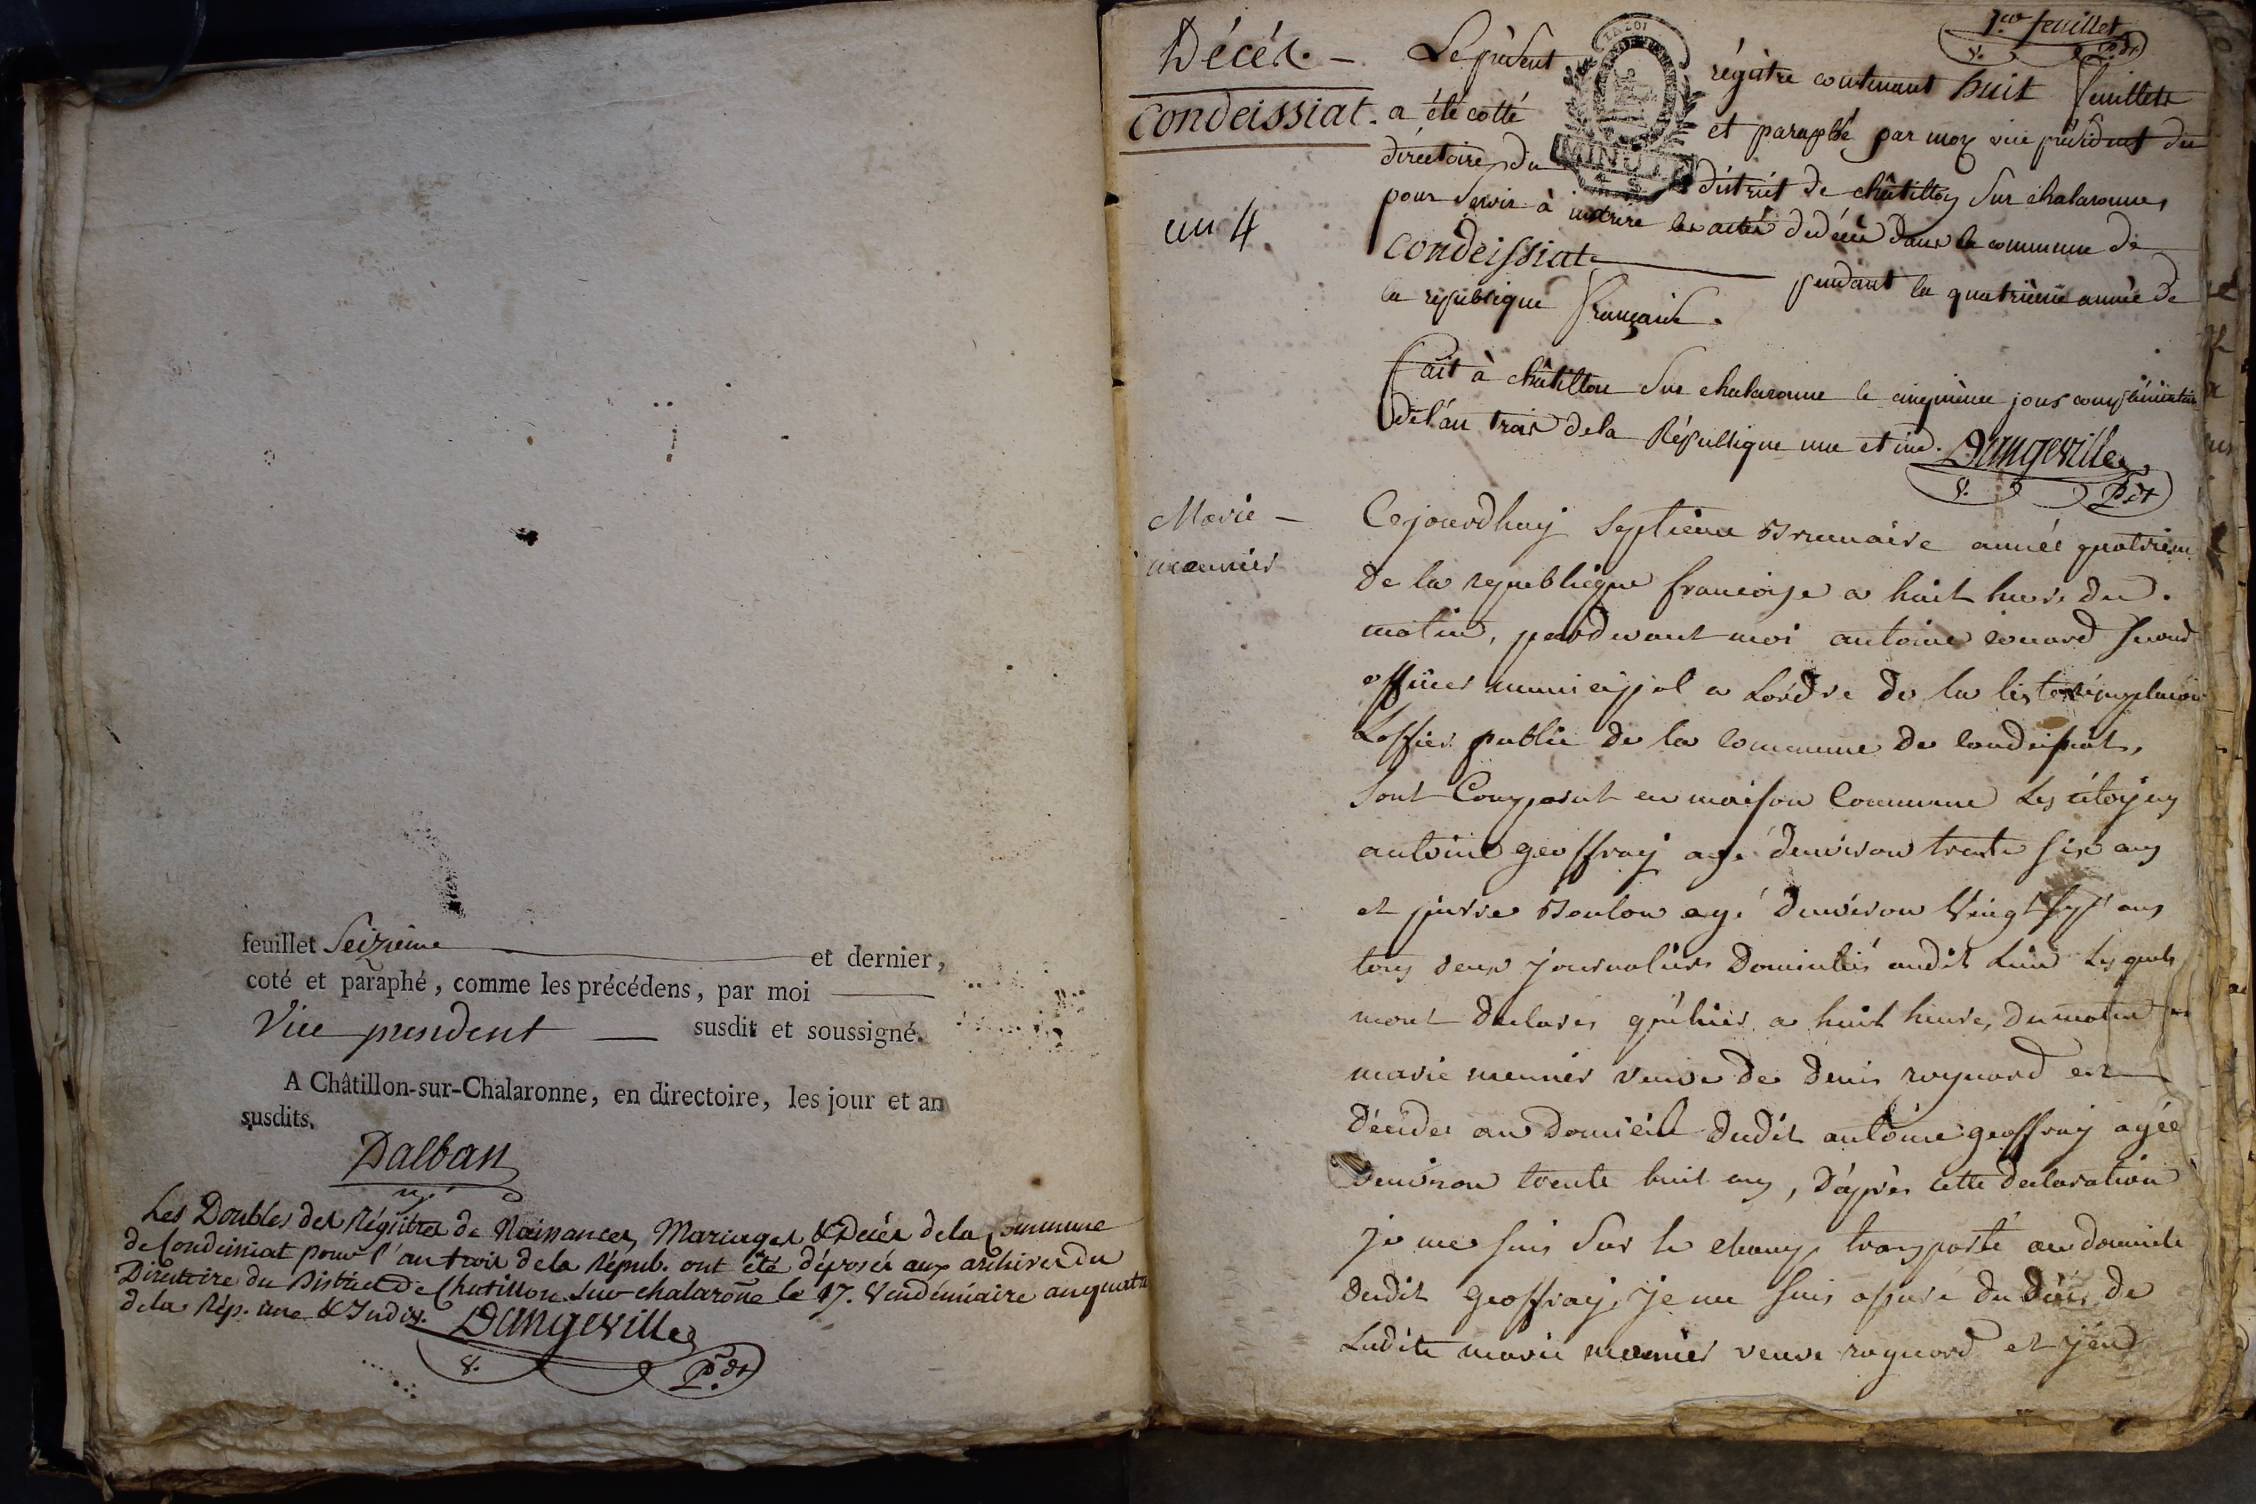 feuillet Seizieme et dernier,
coté et paraphé, comme les précédens, par moi
Vice president susdit et soussigné.
A Châtillon-sur-Chalaronne, en directoire, les jour et an
susdits.
Dalban
v.p.
Les Doubles des Régistres de Naissances, Mariages & Décès de la Commune
de Condeissiat pour l'an trois de la Répub. ont été déposés aux archives du
Directoire du District de Chatillon Sur-chalarone le 17. Vendémiaire an quatre
de la Rép. une & Indiv. Dangeville
V. P.dt
1.er feuillet
V. P.dt
Décès.
Condeissiat.
an 4
LA LOI
MINUTE
Le présent régistre contenant huit feuillets
a été cotté et paraphé par moy vice président du
directoire du district de châtillon Sur chalaronne,
pour Servir à inscrire les actes de décès dans la commune de
Condeissiat pendant la quatrième année de
la republique française.
fait à châtillon Sur chalaronne le cinquième jour complémentaire
de l'an trois de la République une et ind. Dangeville
V. P.dt
Marie
meunier
Cejourdhuy septieme Brumaire année quatrieme
de la republique francoise a huit hure du
matin, pardevant moi antoine second
officier municipal a Lordre de la liste remplacant
Loffier public de la commune de Condeissiat,
sont Comparut en maison Commune Les citoyens
antoine geoffray agé denviron trente six ans
et pierre Boulon agé denviron Vingt sept ans
tous deux journaliers Domiciliés audit Lieu Lesquels
mont declares quhier a huit heure, du matin
marie meunier veuve de denis raynard est
décédée au Domicile dudit antoine geoffray agée
denviron trente huit ans, d'après cette declaration
je me suis sur le champ transporté au domicile
dudit geoffray, je me suis assuré du décès de
Ladite marie meunier veuve raynard et j'en